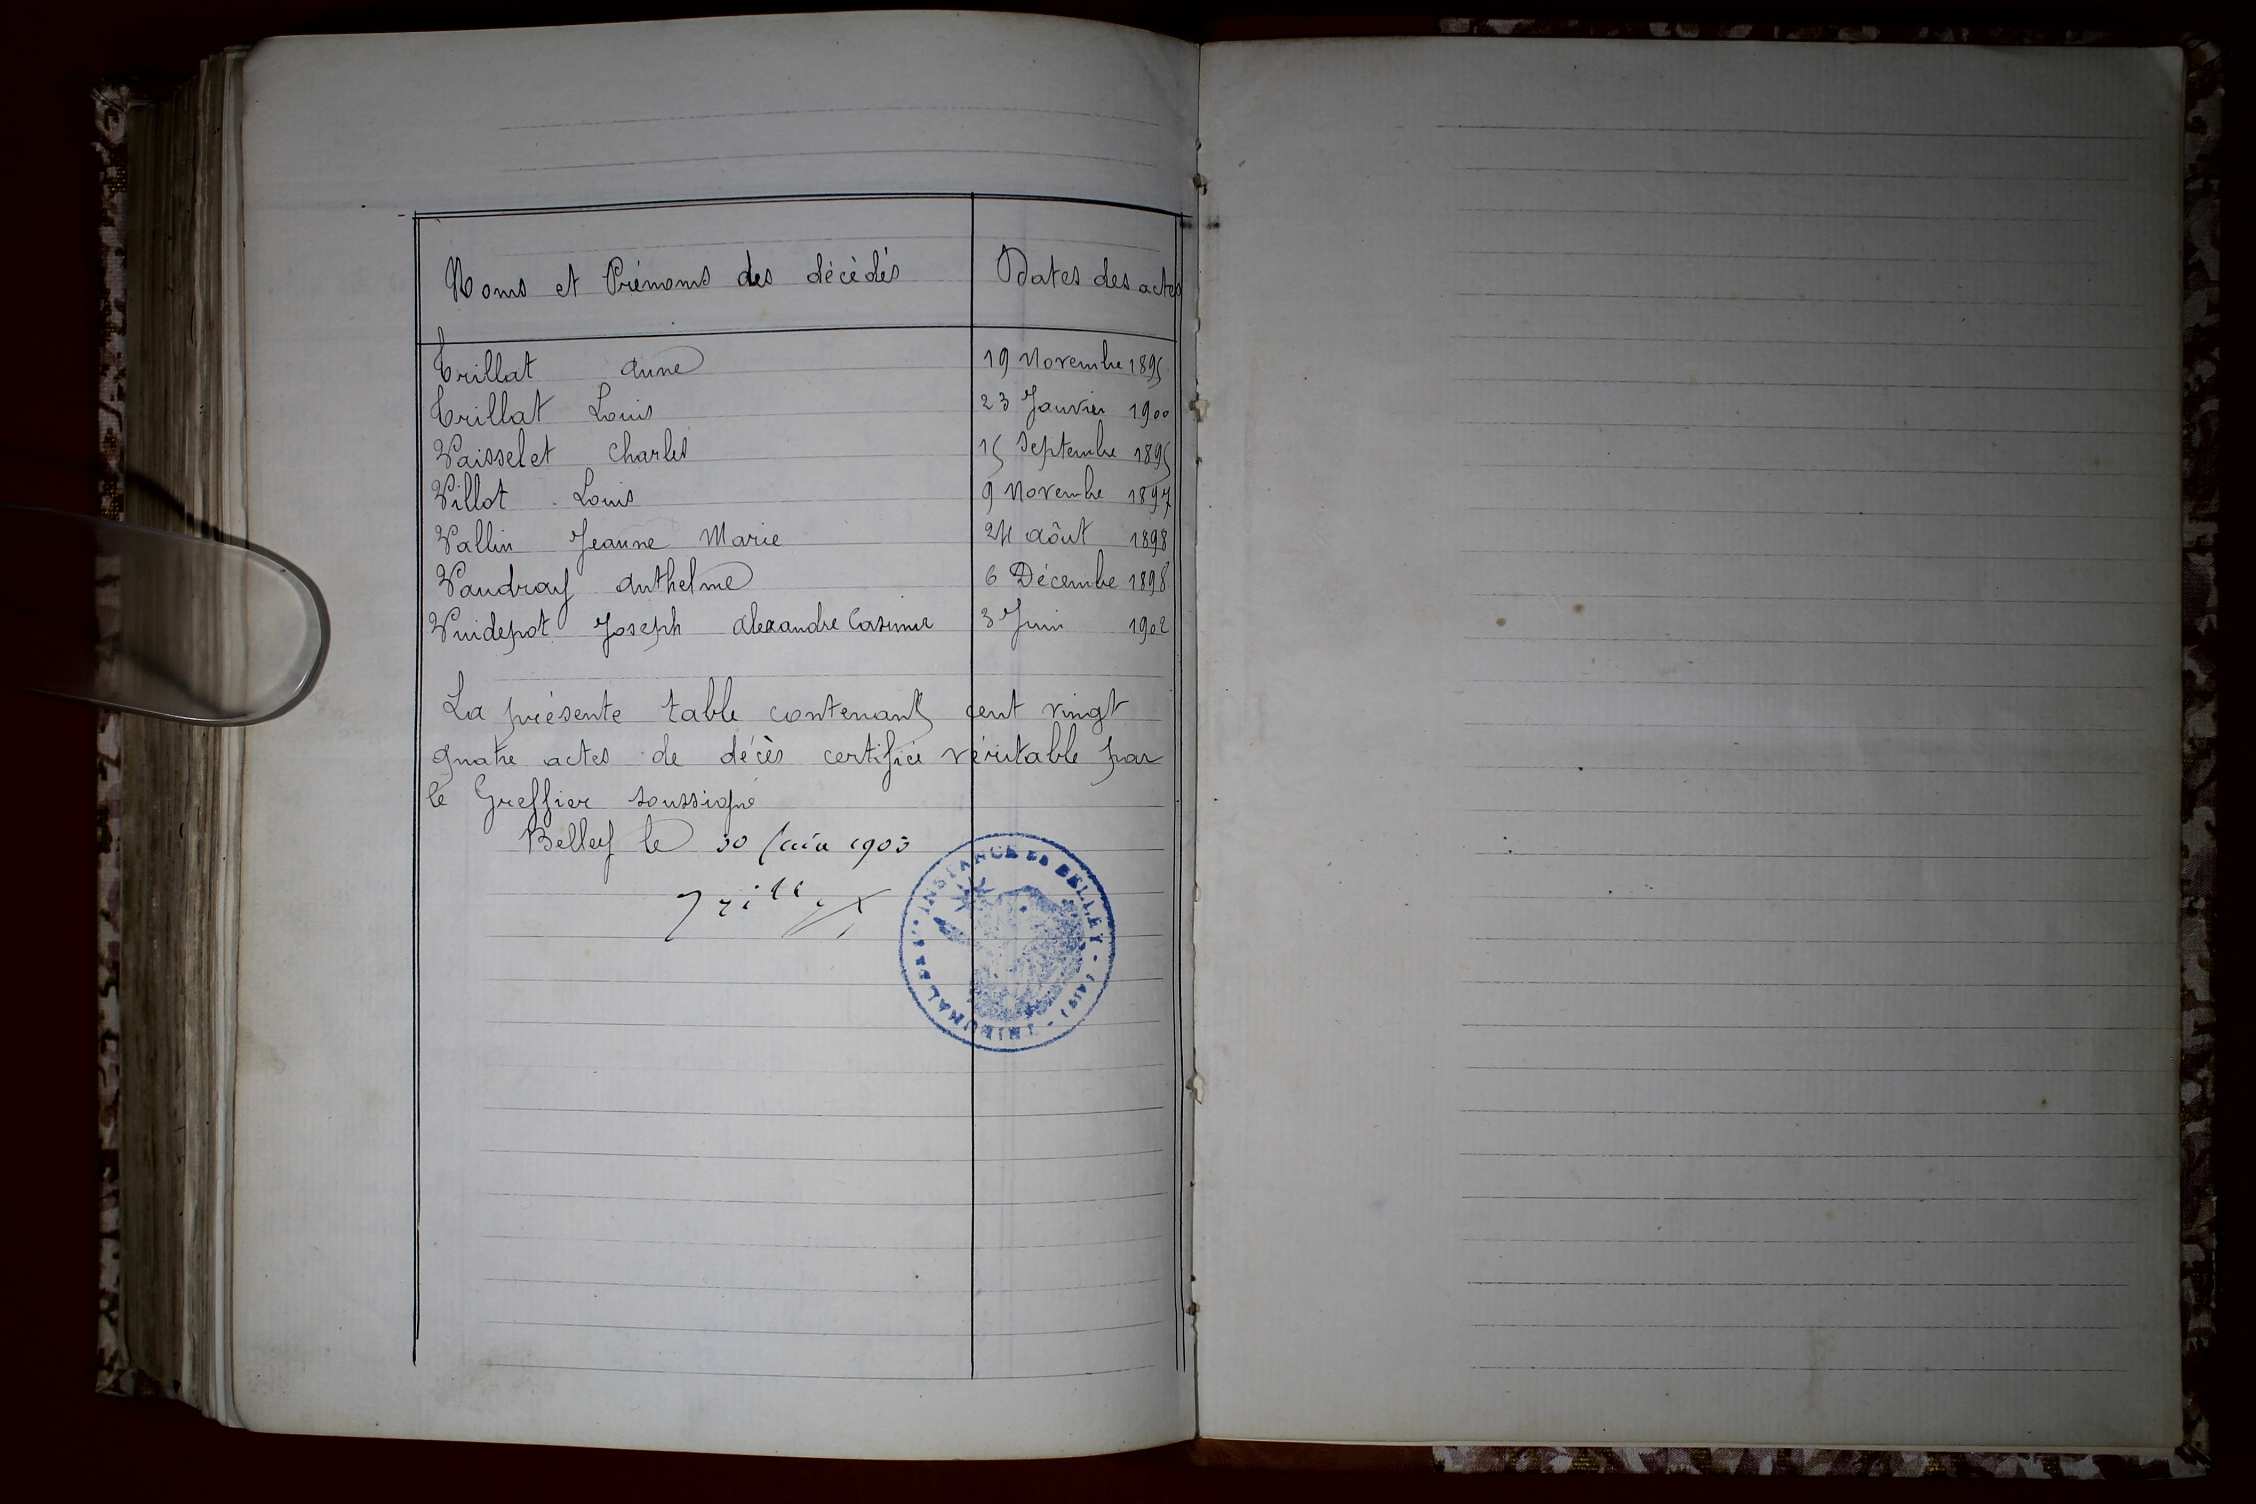 Noms et Prénoms des décédés Dates des actes
Trillat Anne 19 Novembre 1895
Trillat Louis 23 Janvier 1900
Vaisselet Charles 15 Septembre 1895
Villot Louis 9 Novembre 1897
Vallin Jeanne Marie 24 Aôut 1898
Vaudray Anthelme 6 Décembre 1898
Vuidepot Joseph Alexandre Casimir 3 Juin 1902
La présente table contenant cent vingt
quatre actes de décès certifiée véritable par
le Greffier soussigné
Belley le 30 Juin 1903
TRIBUNAL DE 1re INSTANCE DE BELLEY - (AIN) -